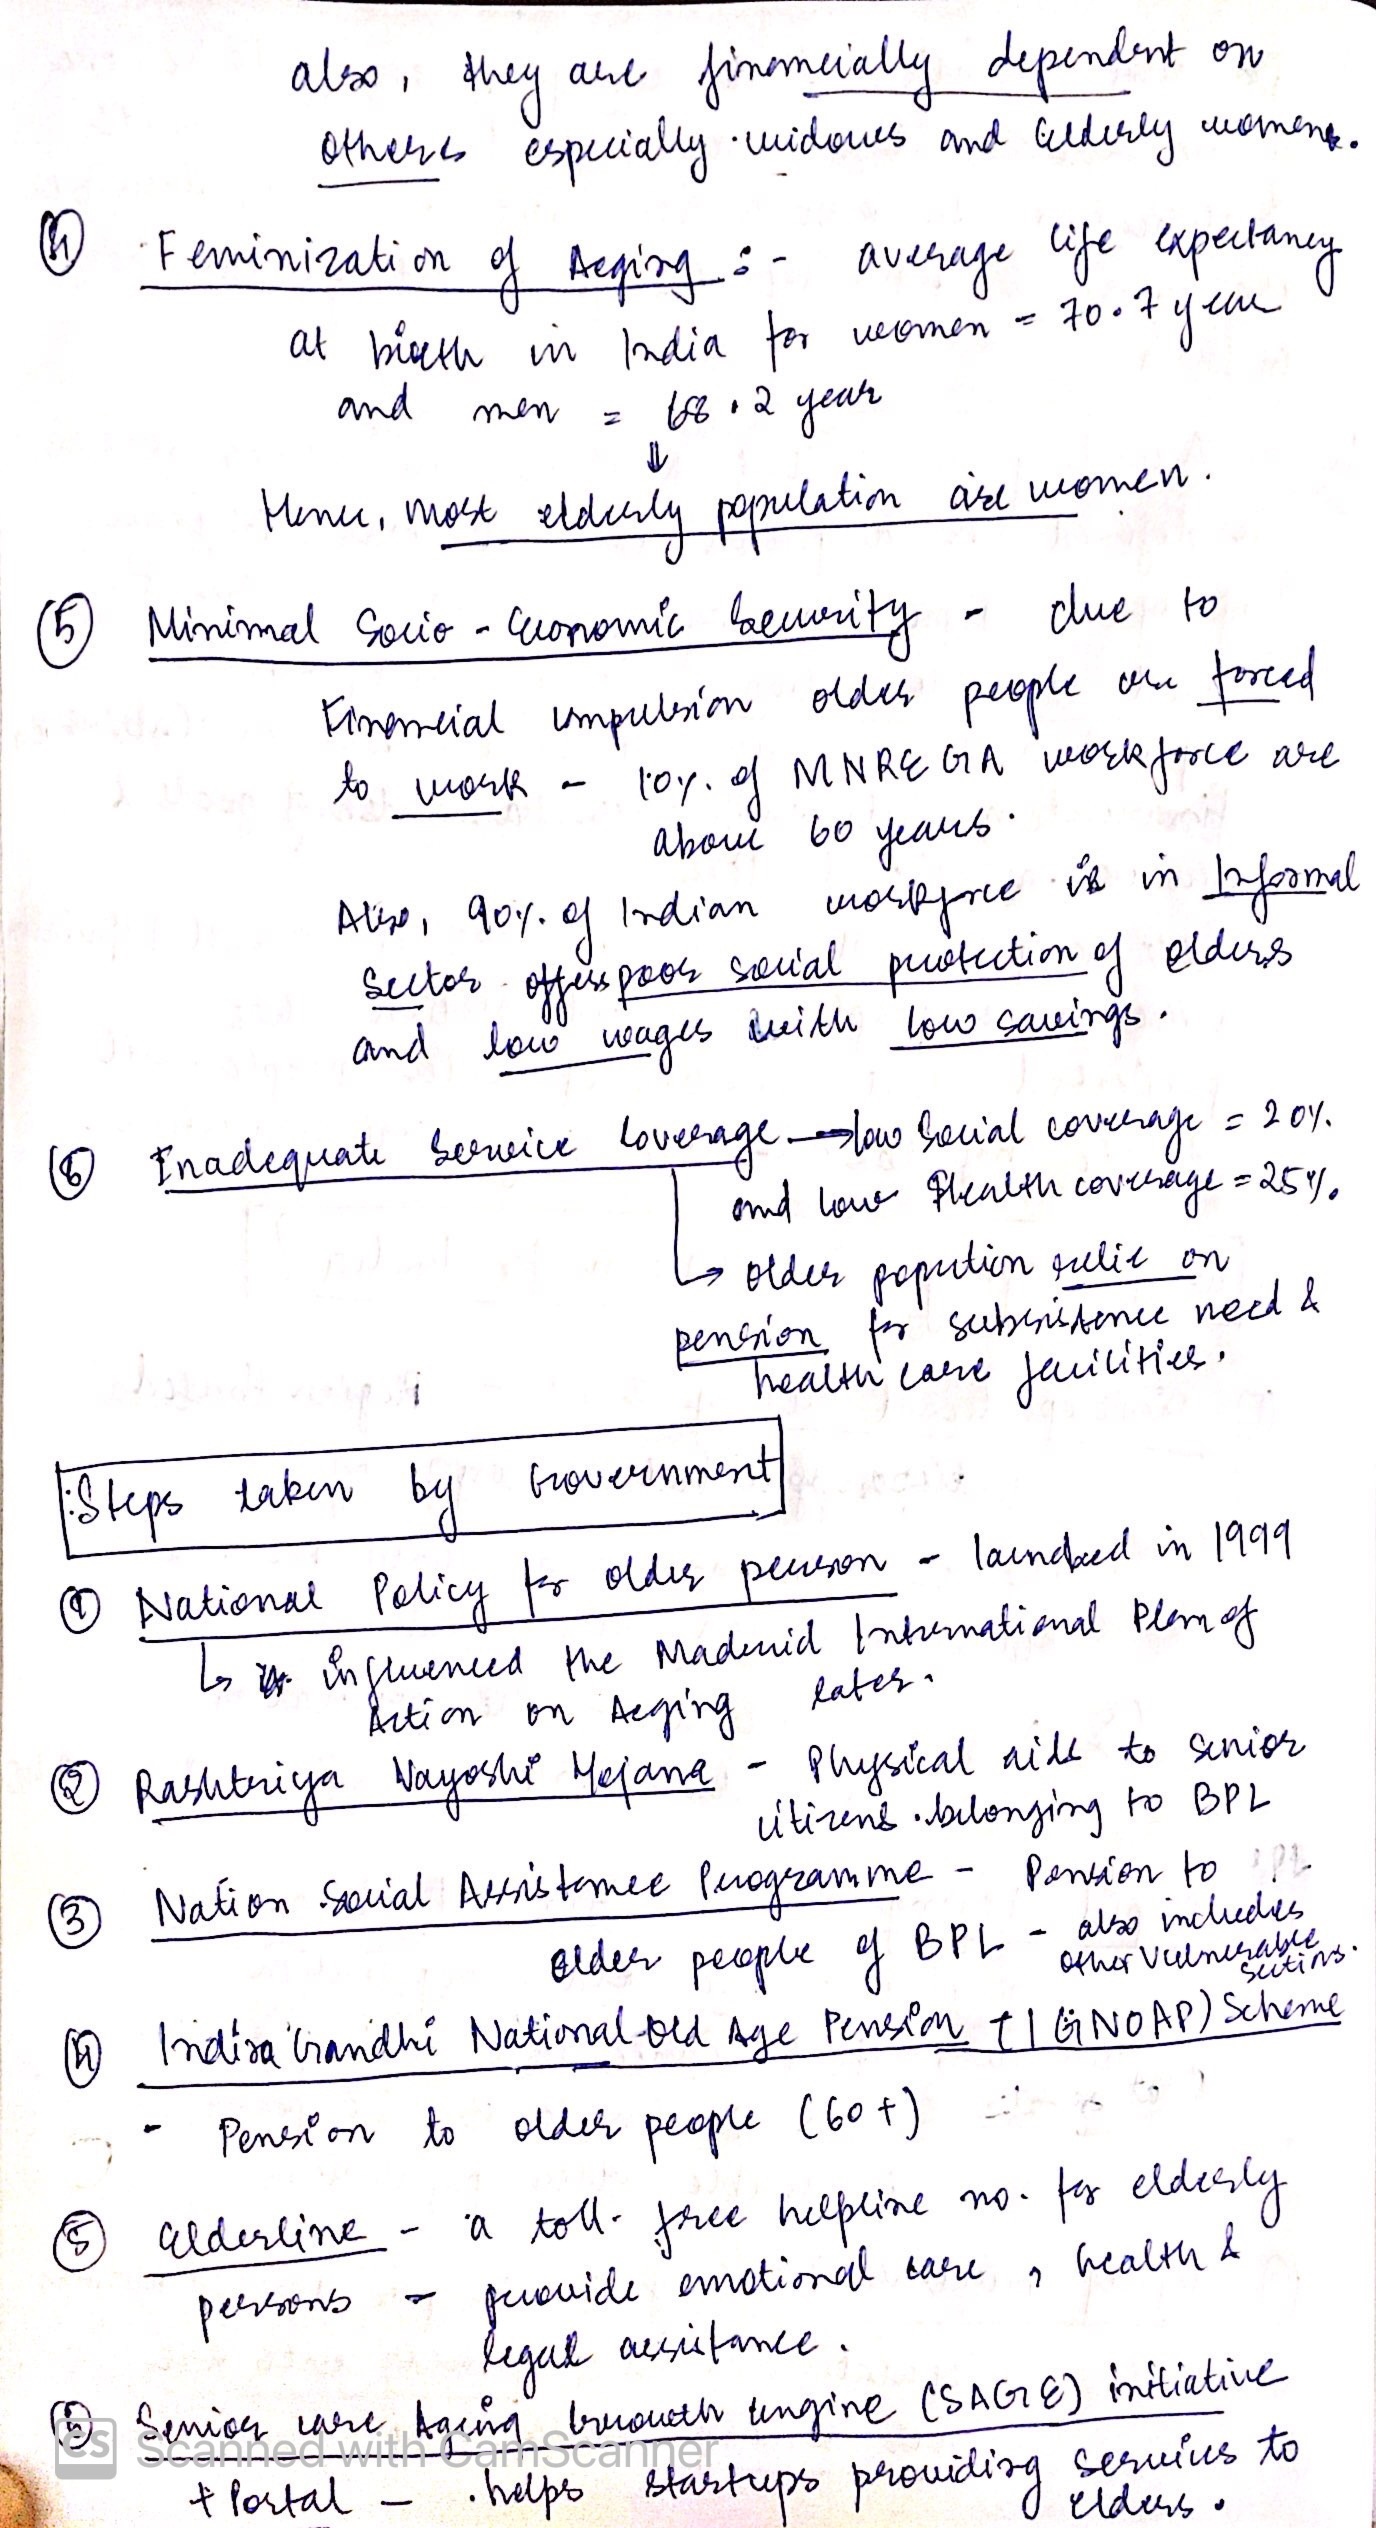 also, they are financially dependent on
others especially widows and Elderly womens.
④ Feminization of Aeging :- average life expectancy
at birth in India for women = 70.7 year
and men = 68.2 year
⇓
Hence, most elderly population are women.
⑤ Minimal Socio-Economic Security - due to
Financial impulsion older people are forced
to work - 10% of MNREGA workforce are
above 60 years.
Also, 90% of Indian workforce is in Informal
Sector offers poor social protection of elders
and low wages with low savings.
⑥ Inadequate Service Coverage → low Social coverage = 20%
and low Health coverage = 25%.
↳ older popution relie on
pension for subsistence need &
health care facilities.
Steps taken by Government
① National Policy for older person - launched in 1999
↳ influenced the Madrid International Plan of
Action on Aeging later.
② Rashtriya Vayoshi Yojana - Physical aids to senior
citizens belonging to BPL
③ Nation Social Assistance Programme - Pension to
older people of BPL - also includes
other Vulnerable
sections.
④ Indira Gandhi National Old Age Pension (IGNOAP) Scheme
- Pension to older people (60+)
⑤ Elderline - a toll-free helpline no. for elderly
persons - provide emotional care, health &
legal assistance.
Senior care Ageing Growth Engine (SAGE) initiative
+ Portal - helps startups providing services to
elders.
CS Scanned with CamScanner